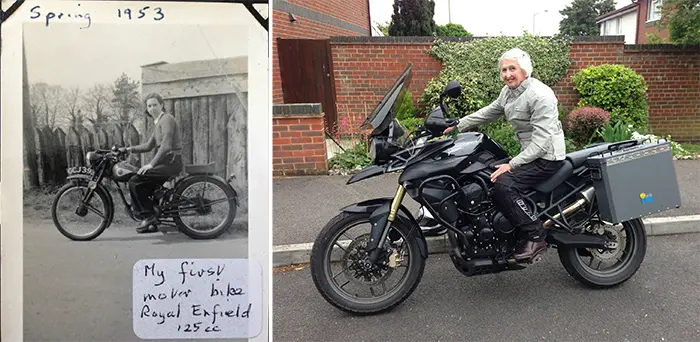 Spring 1953
My first
motor bike
Royal Enfield
125cc